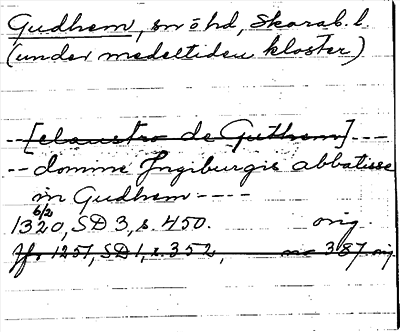 Gudhem, sn o hd, Skarab. l.
(under medeltiden kloster)
--[claustro de Guthem]---
-- domine Ingiburgis abbatisse
in Gudhem ----
6/2
1320, SD 3, s. 450. orig.
Jfr 1251, SD 1, s. 352, no 387 orig.